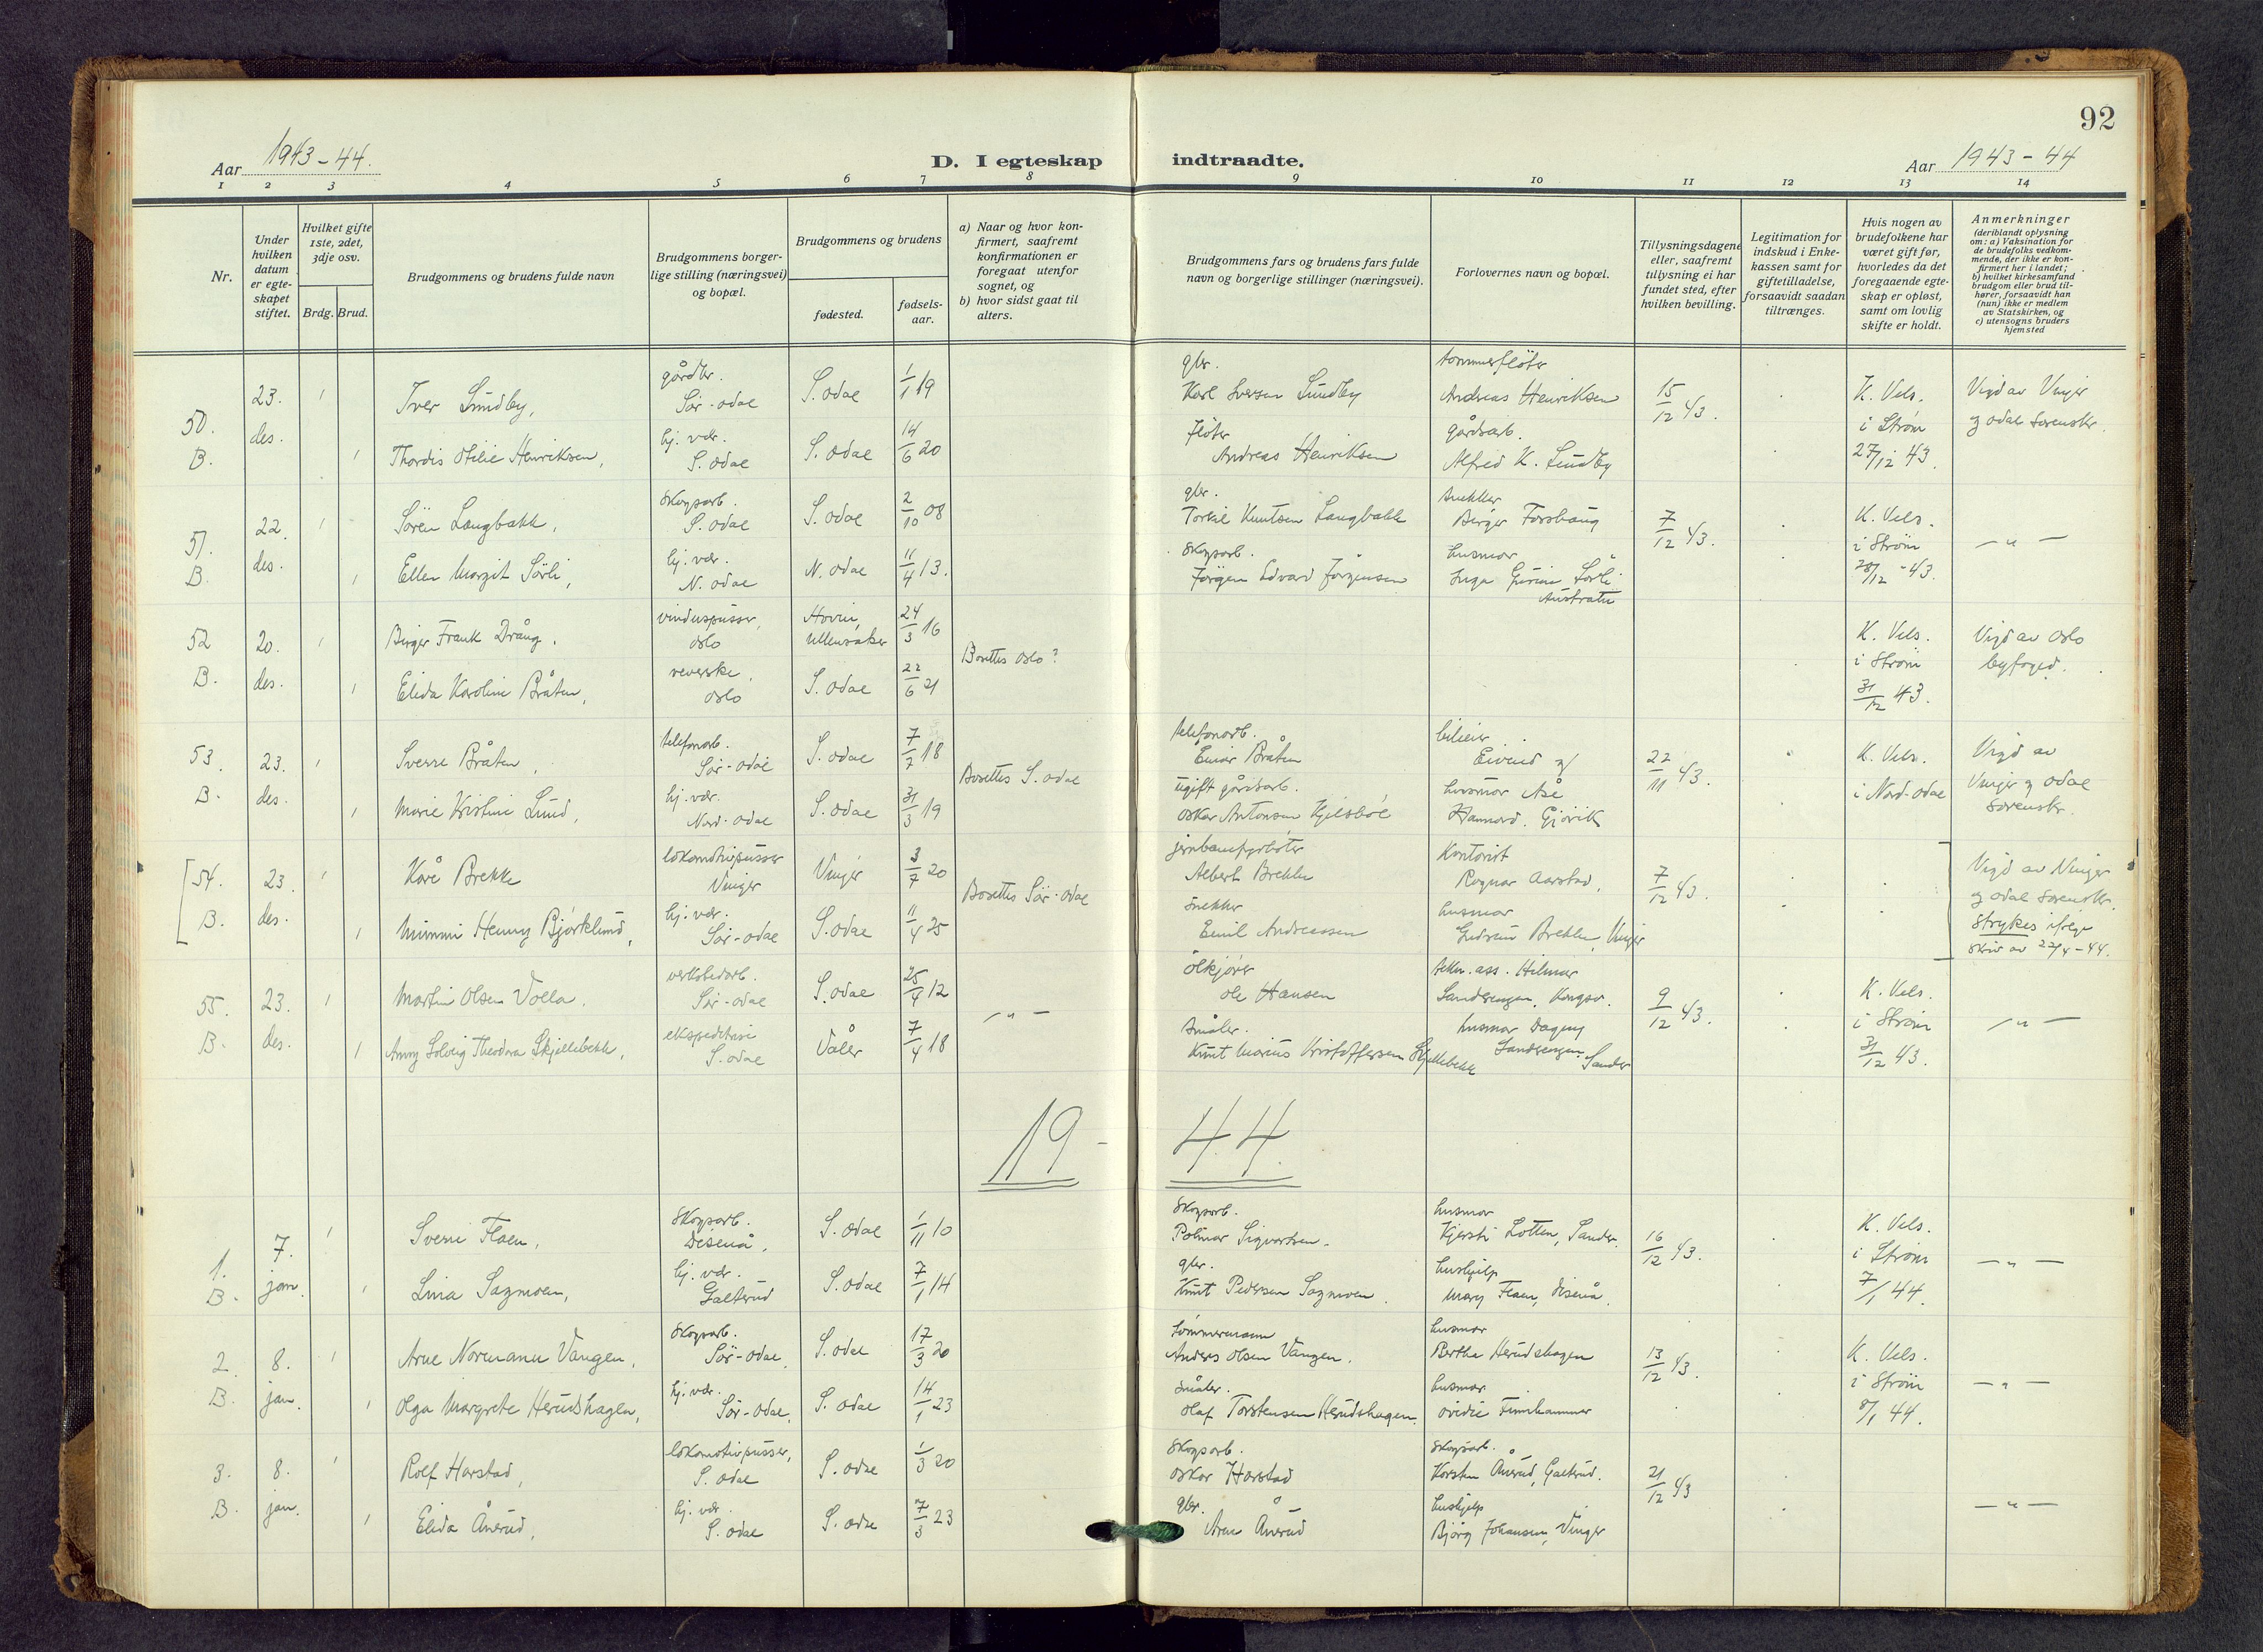 92
Aar 1943-44.
D. I egteskap indtraadte.
Aar 1943-44
1 2 3 4 5 6 7 8 9 10 11 12 13 14
Nr.
Under hvilken datum er egteskapet stiftet.
Hvilket gifte 1ste, 2det, 3dje osv.
Brdg. Brud.
Brudgommens og brudens fulde navn
Brudgommens borgerlige stilling (næringsvei) og bopæl.
Brudgommens og brudens
fødested.
fødselsaar.
a) Naar og hvor konfirmert, saafremt konfirmationen er foregaat utenfor sognet, og
b) hvor sidst gaat til alters.
Brudgommens fars og brudens fars fulde navn og borgerlige stillinger (næringsvei).
Forlovernes navn og bopæl.
Tillysningsdagene eller, saafremt tillysning ei har fundet sted, efter hvilken bevilling.
Legitimation for indskud i Enkekassen samt for giftetilladelse, forsaavidt saadan tiltrænges.
Hvis nogen av brudefolkene har været gift før, hvorledes da det foregaaende egteskap er opløst, samt om lovlig skifte er holdt.
Anmerkninger (deriblandt oplysning om: a) Vaksination for de brudefolks vedkommende, der ikke er konfirmert her i landet; b) hvilket kirkesamfund brudgom eller brud tilhører, forsaavidt han (hun) ikke er medlem av Statskirken, og c) utensogns bruders hjemsted
50. 23. des. 1 Iver Sundby, gårdbr. Sør-odal S. odal 1/1 19 gbr. Karl Iversen Sundby tømmerfløter Andreas Henriksen 15/12 43. K. Vels. i Strøm 27/12 43. Vigd av Vinger og odal sorenskr.
B. 1 Thordis Otilie Henriksen, hj. vær. S. odal S. odal 14/6 20 Fløter Andreas Henriksen gårdsarb. Alfred K. Sundby
51. 22. des. 1 Søren Langbakk, skogsarb. S. odal S. odal 2/10 08 gbr. Torkil Knutsen Langbakk snekker Birger Forsbaug 7/12 43. K. Vels. i Strøm 28/12-43. - " -
B. 1 Ellen Margit Sørli, hj. vær. N. odal N. odal 11/4 13. skogsarb. Jørgen Edvard Jørgensen husmor Inga Gurine Sørli
52 20. des. 1 Birger Frank Drång. vinduspusser, oslo Hovin, Ullensaker 24/3 16 Bosettes oslo? K. Vels. i Strøm 31/12 43. Vigd av oslo byfoged.
B. 1 Elida Karoline Bråten, oslo S. odal 22/6 21
53. 23. des. 1 Sverre Bråten, telefonarb. Sør-odal S. odal 7/7 18 Bosettes S. odal telefonarb. Einar Bråten bileier Eivind og 22/11 43. K. Vels. i Nord-odal Vigd av Vinger og odal sorenskr.
B. 1 Marie Kristine Lund, hj. vær. Nord-odal S. odal 31/3 19 ugift gårdsarb. oskar Antonsen Kjelsbøl husmor Åse Hammord. Gjövik
54. 23. des. 1 Kåre Brekke lokomotivpusser Vinger Vinger 3/7 20 Bosettes Sør-odal Albert Brekke Kontorist Ragnar Aarstad, 7/12 43. Vigd av Vinger og odal sorenskr. Strykes ifølge skriv av 22/4-44.
B. 1 Mimmi Henny Bjørklund, hj. vær. Sør-odal S. odal 11/4 25 snekker Emil Andreassen husmor Gudrun Brekke, Vinger
55. 23. des. 1 Martin Olsen Volla. verkstedarb. Sør-odal S. odal 25/4 12 - " - ølkjører Ole Hansen tekn. ass. Hilmar Sandsengen, Kongsv. 9/12 43. K. Vels. i Strøm 31/12 43. - " -
B. 1 Anny Solveig Theodora Skjellebekk, ekspeditrise S. odal Våler 7/4 18 småbr. Knut Marius Kristoffersen Skjellebekk husmor Dagny Sandsengen Sander
19-44.
1. 7. jan. 1 Sverre Floen, skogsarb. Disenå. S. odal 1/11 10 skogsarb. Polmar Sigvartsen. husmor Kjersti Lotten, Sander. 16/12 43. K. Vels. i Strøm 7/1 44. - " -
B. 1 Lina Sagmoen, hj. vær. Galterud S. odal 7/1 14 gbr. Knut Pedersen Sagmoen. hushjelp Mary Floen, Disenå.
2. 8. jan. 1 Arne Normann Vangen, skogsarb. Sør-odal. S. odal 17/3 20 tømmermann Anders Olsen Vangen. husmor Bertha Herudshagen 13/12 43. K. Vels. i Strøm 8/1 44. - " -
B. 1 Olga Margrete Herudshagen, hj. vær. Sør-odal. S. odal 14/1 23 småbr. Olaf Torstensen Herudshagen. husmor ovidie Finnhammer
3. 8. jan. 1 Rolf Harstad, lokomotivpusser, S. odal S. odal 1/3 20 skogsarb. oskar Harstad skogsarb. Karsten Ånerud, Galterud. 21/12 43 - " -
B. 1 Elida Ånerud, hj. vær. S. odal S. odal 7/3 23 gbr. Arne Ånerud hushjelp Bjørg Johansen, Vinger